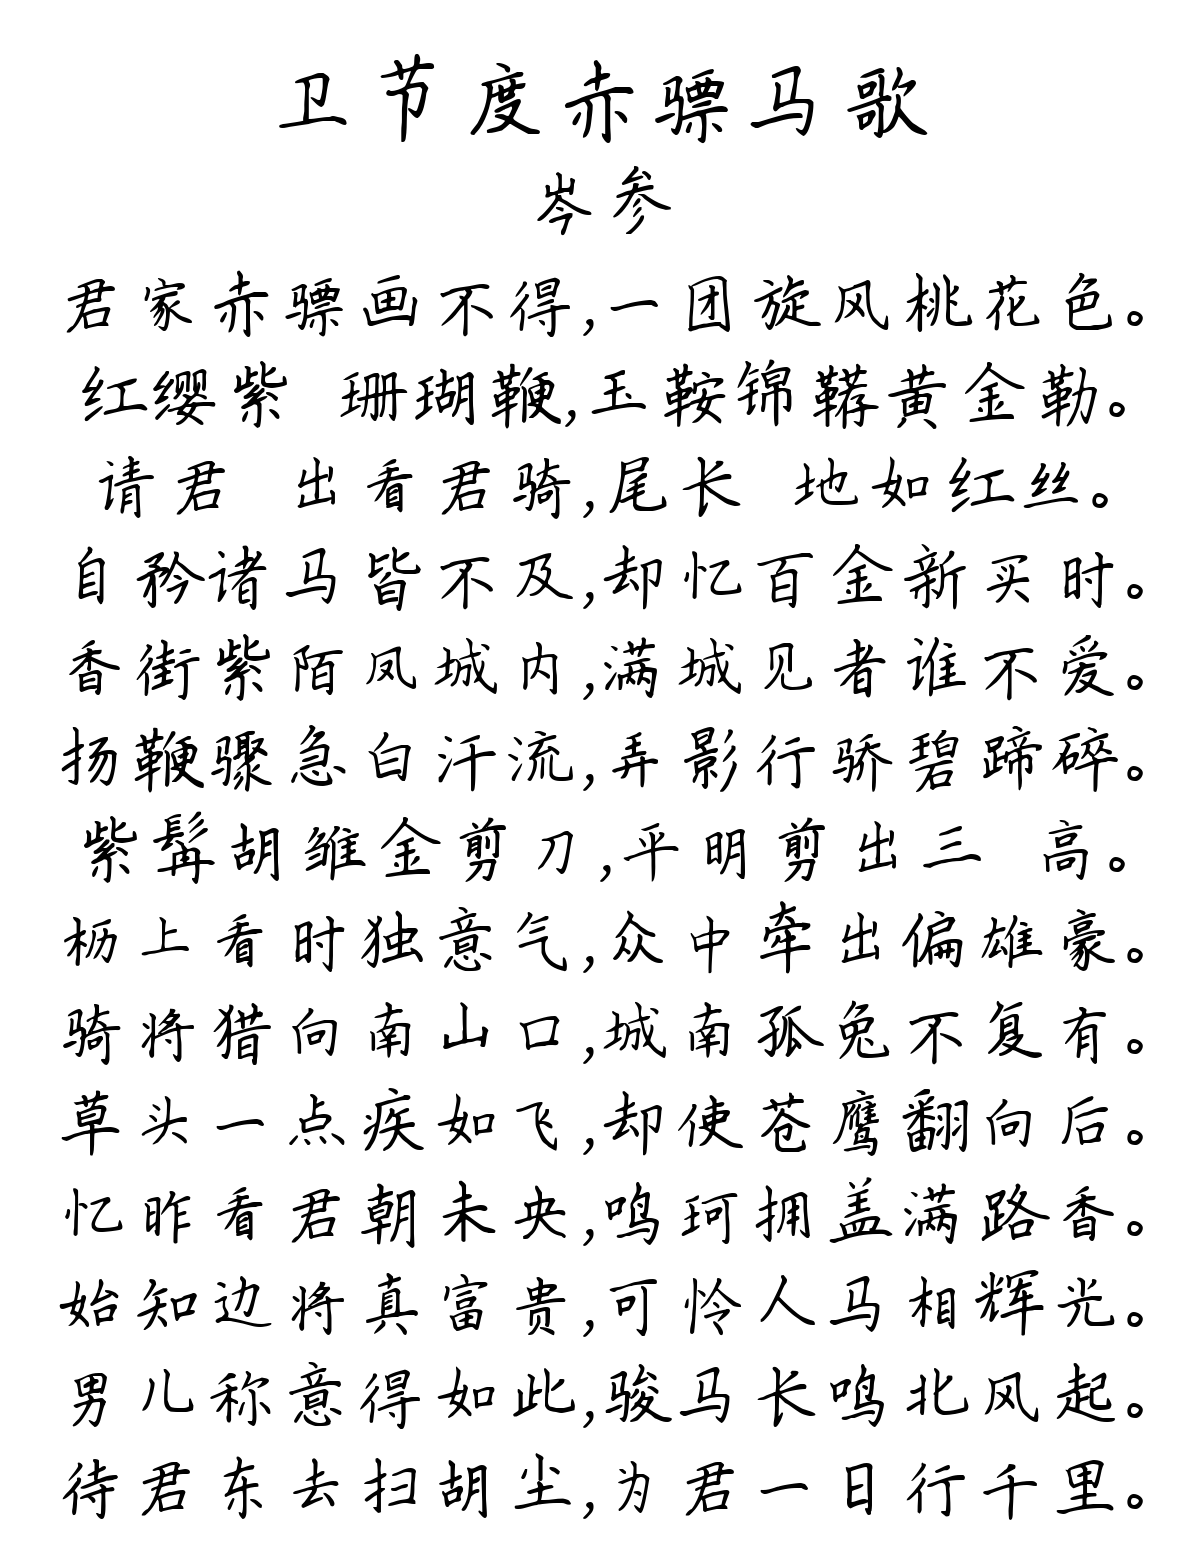 卫节度赤骠马歌
岑参
君家赤骠画不得,一团旋风桃花色。
红缨紫 珊瑚鞭,玉鞍锦鞯黄金勒。
请君 出看君骑,尾长 地如红丝。
自矜诸马皆不及,却忆百金新买时。
香街紫陌凤城内,满城见者谁不爱。
扬鞭骤急白汗流,弄影行骄碧蹄碎。
紫髯胡雏金剪刀,平明剪出三 高。
枥上看时独意气,众中牵出偏雄豪。
骑将猎向南山口,城南孤兔不复有。
草头一点疾如飞,却使苍鹰翻向后。
忆昨看君朝未央,鸣珂拥盖满路香。
始知边将真富贵,可怜人马相辉光。
男儿称意得如此,骏马长鸣北风起。
待君东去扫胡尘,为君一日行千里。